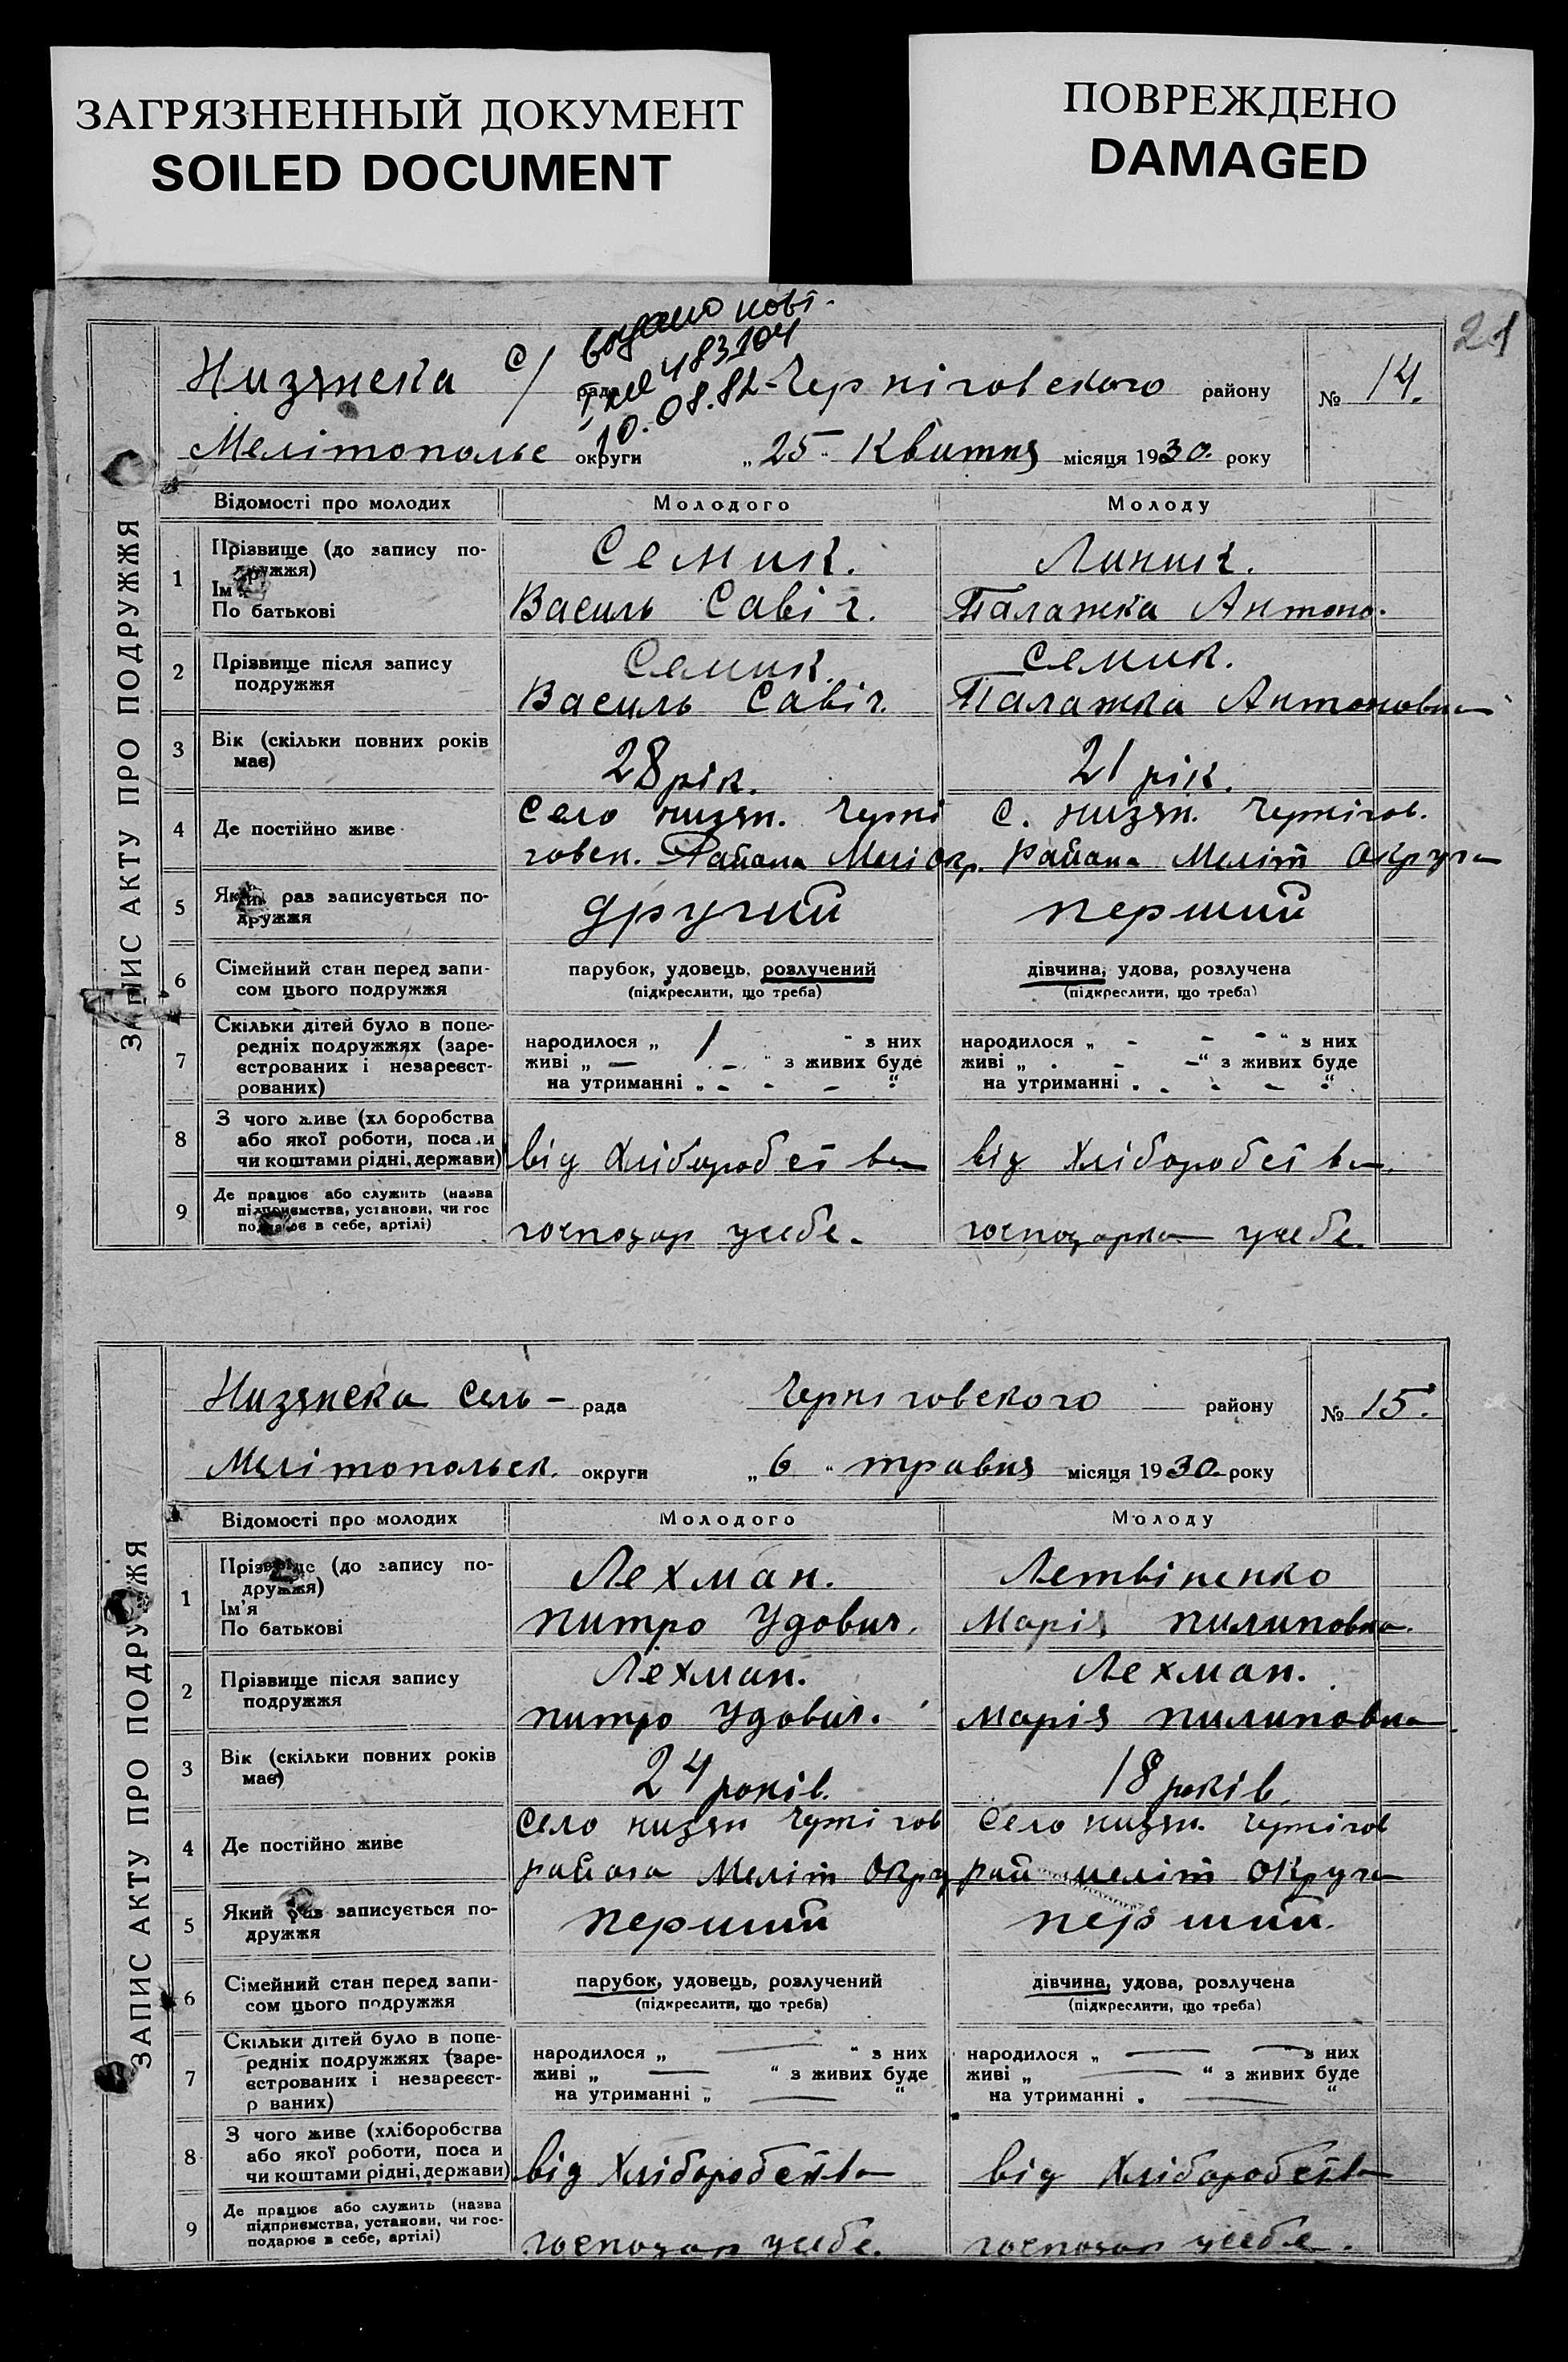 ЗАГРЯЗНЕННЫЙ ДОКУМЕНТ
SOILED DOCUMENT
ПОВРЕЖДЕНО
DAMAGED
21
видано нові
483104
10.08.82
Низянска С/ рада Чернiговского району № 14.
Мелiтопольс округи „25" Квитня місяця 1930. року
ЗАПИС АКТУ ПРО ПОДРУЖЖЯ
Відомості про молодих Молодого Молоду
1 Прізвище (до запису по-
дружжя)
Ім'я
По батькові
Семик. Линик.
Василь Савіч. Палажка Антоно.
2 Прізвище після запису
подружжя
Семик. Семик.
Василь Савіч. Палажка Антоновна
3 Вік (скільки повних років
має)
28 рік. 21 рік.
4 Де постійно живе
Село низян. Черні С. низян. Чернігов.
говск. Района Мелі Окр. Района Меліт Округа
5 Який раз записується по-
дружжя
другий перший
6 Сімейний стан перед запи-
сом цього подружжя
парубок, удовець, розлучений дівчина, удова, розлучена
(підкреслити, що треба) (підкреслити, що треба)
7 Скільки дітей було в попе-
редніх подружжях (заре-
єстрованих і незареєст-
рованих)
народилося „ 1 " з них народилося „ - - - " з них
живі „ — - " з живих буде живі „ - - - " з живих буде
на утриманні „ - - - " на утриманні „ - - - "
8 З чого живе (хл боробства
або якої роботи, поса и
чи коштами рідні, держави)
від Хліборобства від Хліборобства
9 Де працює або служить (назва
підприємства, установи, чи гос
подарює в себе, артілі)
господар усебе. господарка усебе.
Низянска Сель- рада Чернiговского — району № 15.
Мелiтопольск. округи „6" травня місяця 1930. року
ЗАПИС АКТУ ПРО ПОДРУЖЖЯ
Відомості про молодих Молодого Молоду
1 Прізвище (до запису по-
дружжя)
Ім'я
По батькові
Лехман. Летвіненко
питро Удович. Марія пилиповна.
2 Прізвище після запису
подружжя
Лехман. Лехман.
питро Удович. Марія пилиповна
3 Вік (скільки повних років
має)
24 років. 18 років.
4 Де постійно живе
Село низян Чернігов Село низян. Чернігов
района Меліт Окру рай меліт Округа
5 Який раз записується по-
дружжя
перший перший.
6 Сімейний стан перед запи-
сом цього подружжя
парубок, удовець, розлучений дівчина, удова, розлучена
(підкреслити, що треба) (підкреслити, що треба)
7 Скільки дітей було в попе-
редніх подружжях (заре-
єстрованих і незареєст-
р ваних)
народилося „ — " з них народилося „ — — з них
живі „ — " з живих буде живі „ — " з живих буде
на утриманні „ — " на утриманні „ — "
8 З чого живе (хліборобства
або якої роботи, поса и
чи коштами рідні, держави)
від Хліборобства від Хліборобства
9 Де працює або служить (назва
підприємства, установи, чи гос-
подарює в себе, артілі)
господар усебе. господар усебе.